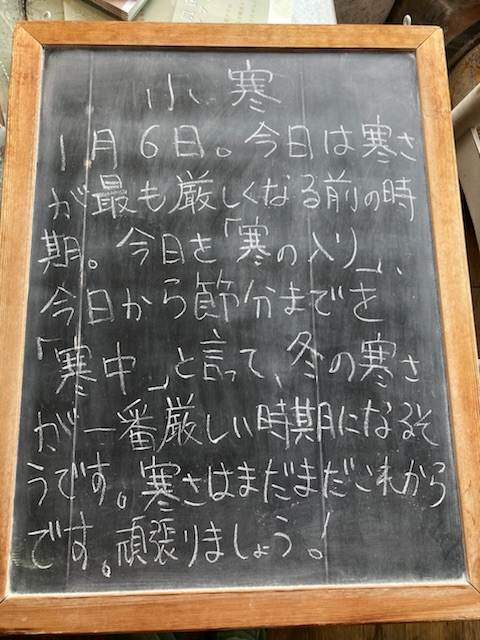 小寒
1月6日。今日は寒さ
が最も厳しくなる前の時
期。今日を「寒の入り」、
今日から節分までを
「寒中」と言って、冬の寒さ
が一番厳しい時期になるそ
うです。寒さはまだまだこれから
です。頑張りましょう!